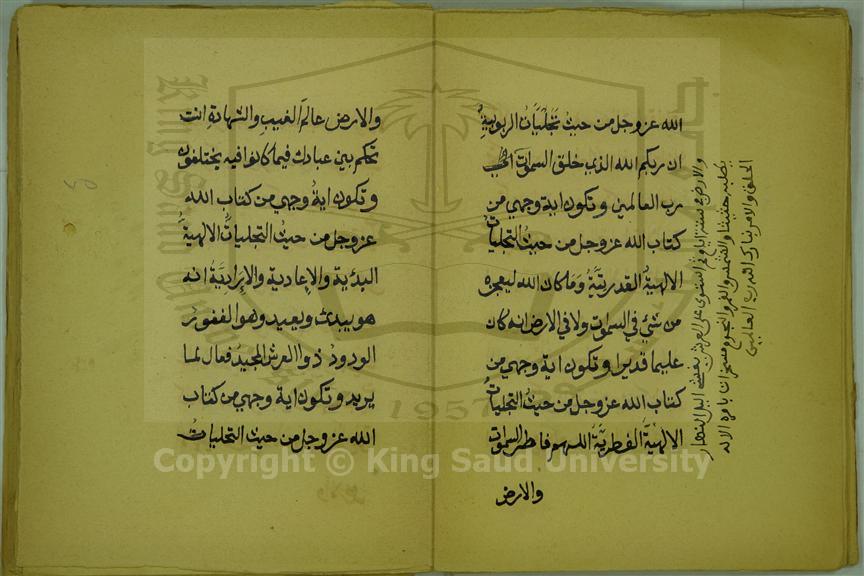 الله عز وجل من حيث تجليات الربوبية
ان ربكم الله الذي خلق السموات الى
رب العالمين وتكون اية وجهي من
كتاب الله عز وجل من حيث التجليات
الالهية القدرتية وما كان الله ليعجزه
من شيء في السموات ولا في الارض انه كان
عليما قديرا وتكون اية وجهي من
كتاب الله عز وجل من حيث التجليات
الالهية الفطرية اللهم فاطر السموات
والارض
والارض في ستة ايام ثم استوى على العرش يغشى اليل النهار
يطلبه حثيثا والشمس والقمر والنجوم مسخرات بامره الا له
الخلق والامر تبارك الله رب العالمين
والارض عالم الغيب والشهادة انت
تحكم بين عبادك فيما كانوا فيه يختلفون
وتكون اية وجهي من كتاب الله
عز وجل من حيث التجليات الالهية
البدئية والإعادية والإرادية انه
هو يبدئ ويعيد وهو الغفور
الودود ذو العرش المجيد فعال لما
يريد وتكون اية وجهي من كتاب
الله عز وجل من حيث التجليات
King Saud University
1957
Copyright © King Saud University